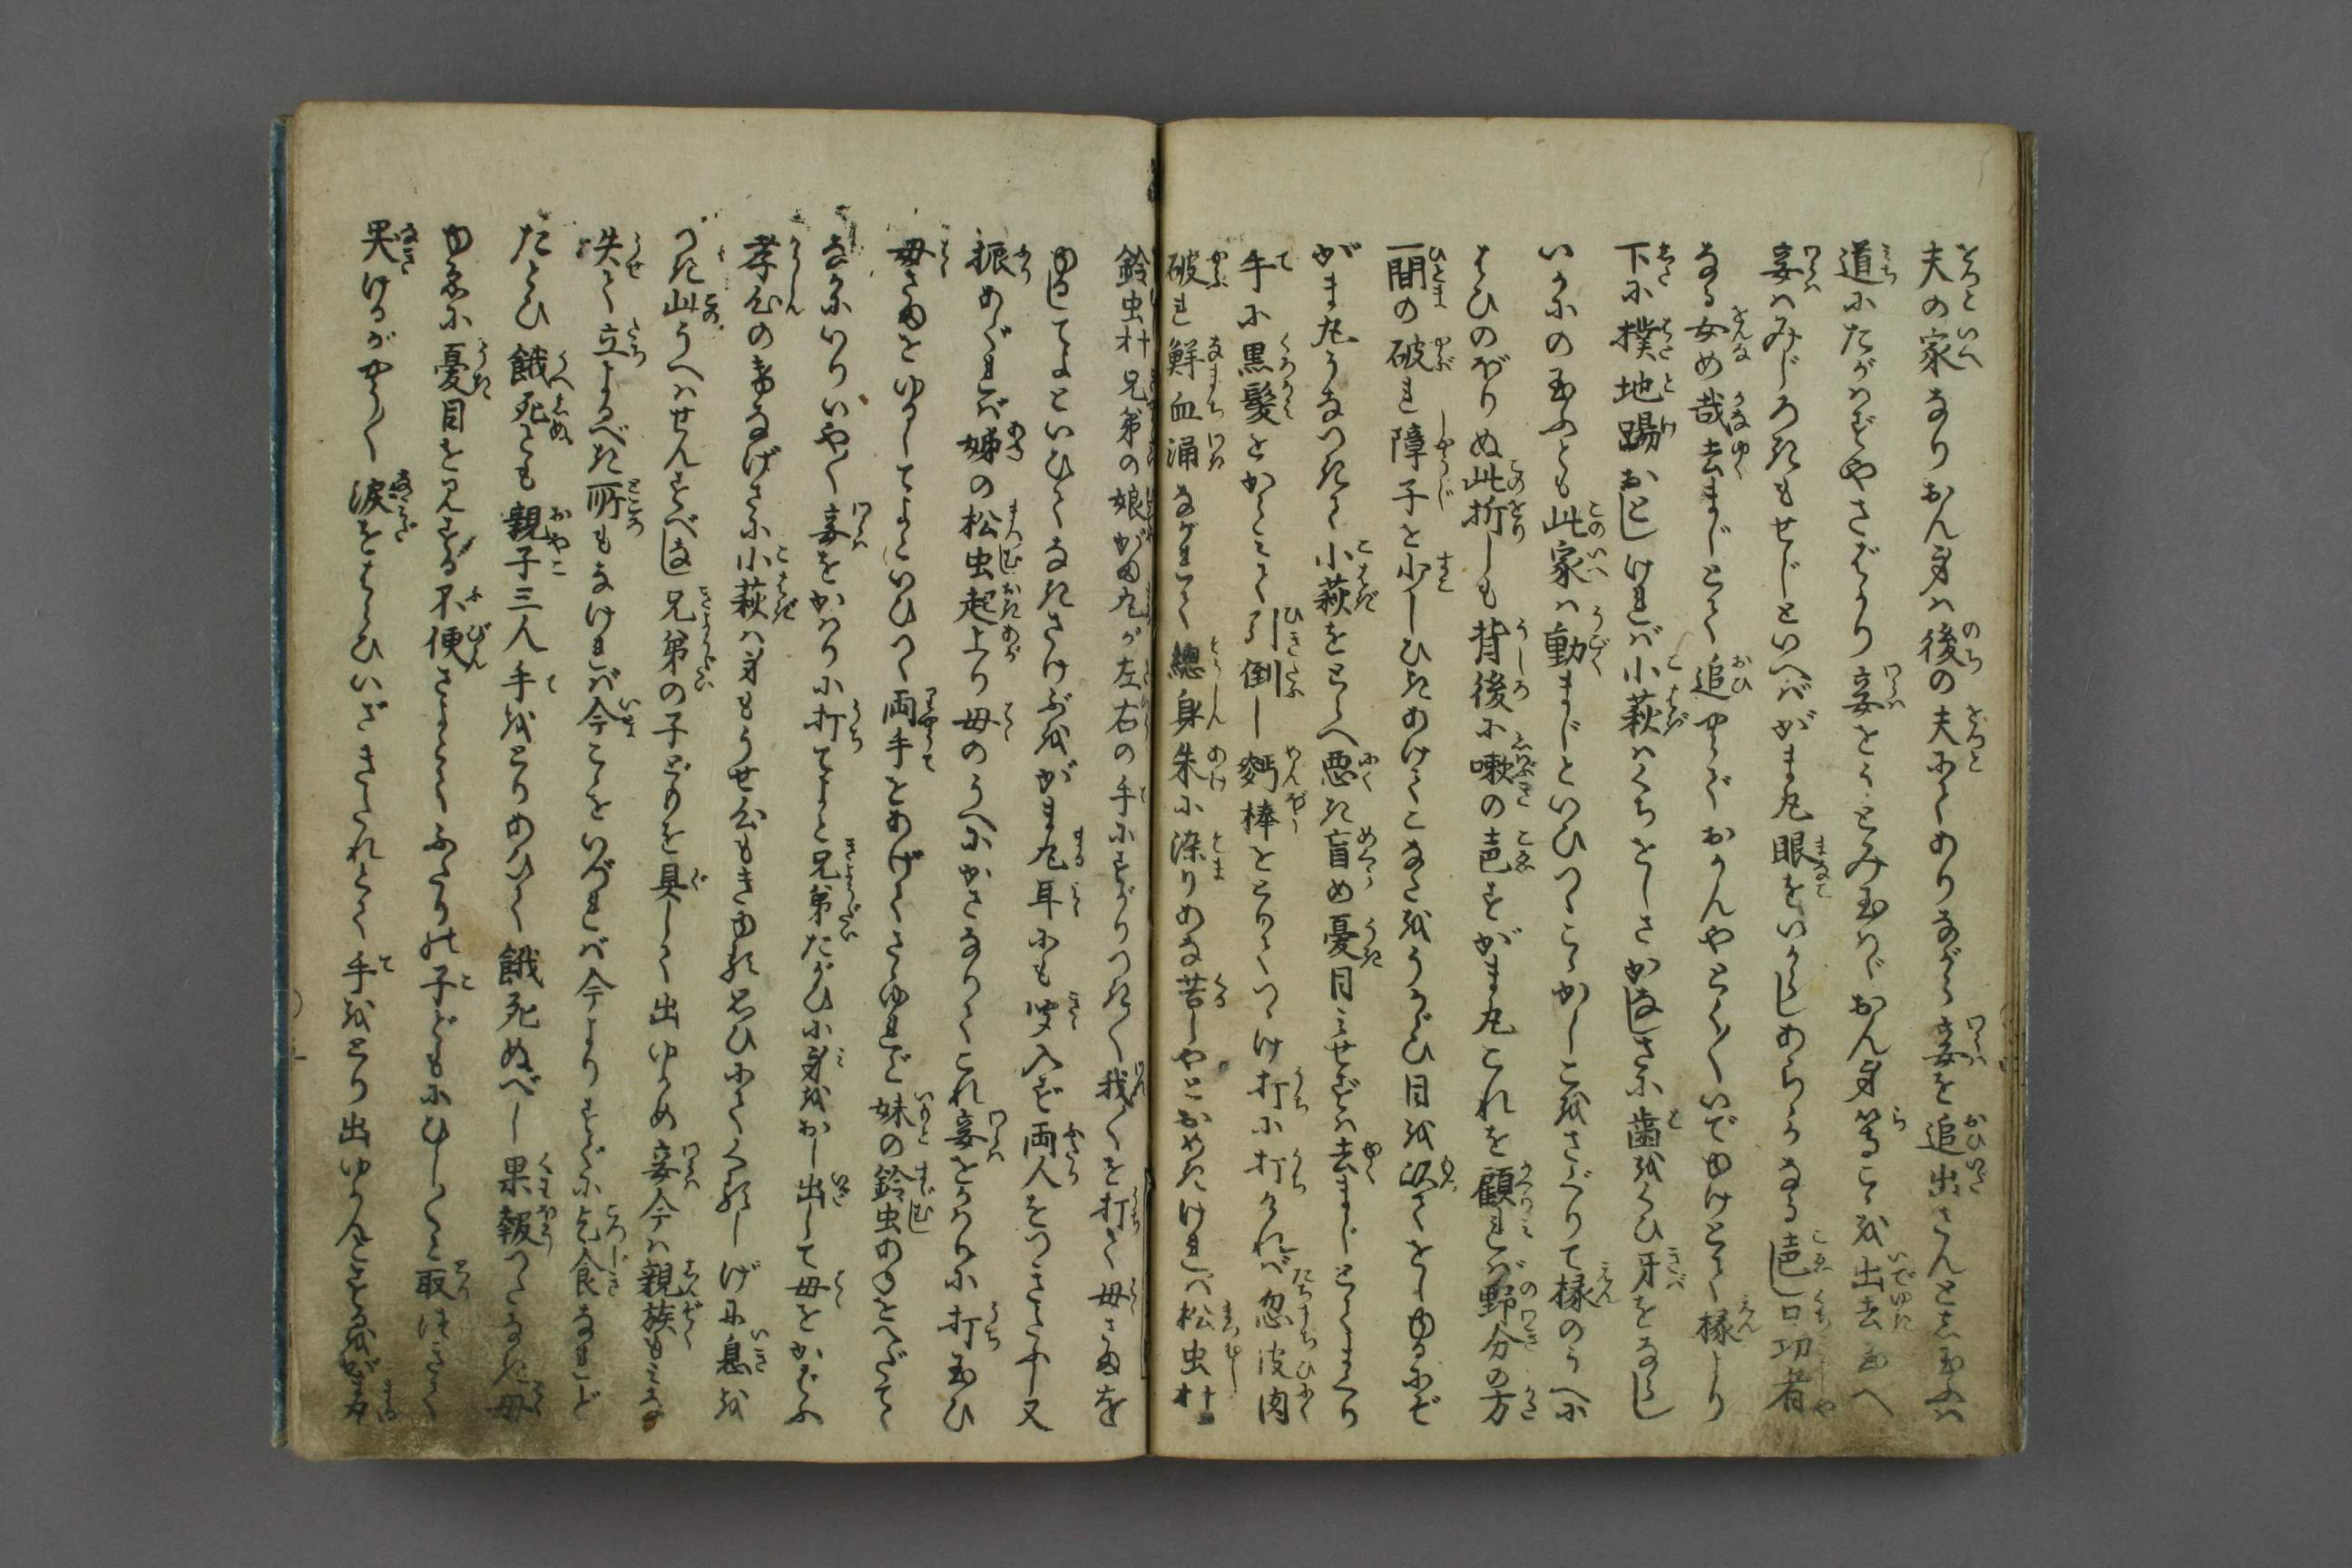 夫の家なりおん身は後の夫にてありながら妾を追出さんとし玉ふは
道にたがはずやさばかり妾をうとみ玉はゞおん身等こゝを出去玉へ
妾はみじろきもせじといへばがま丸眼をいからしあららかなる声し口功者
なる女め哉去まじとて追やらでおかんやとく〱いでゆけとて椽より
下に撲地踢おとしければ小萩はくちをしさかなしさに歯をくひ牙をならし
いかにの玉ふとも此家は動まじといひつゝこゝかしこをさぐりて椽のうへに
はひのぼりぬ此折しも背後に嗽の声すがま丸これを顧れば野分の方
一間の破れ障子を小しひきあけてこなたをうかゞひ目を以てをしゆるにぞ
がま丸うなづきて小萩をとらへ悪き盲め憂目みせずは去まじとくまくり
手に黒髮をかいつかみて引倒し麪棒をとりてつゞけ打に打ければ忽皮肉
破れ鮮血涌ながれて總身朱に染りあな苦しやとおめきければ松虫
鈴虫 兄弟の娘がま丸が左右の手にすがりつき〱我〱を打て母さまを
ゆるしてよといひてなきさけぶをがま丸耳にも聞入ず両人をつきたふし又
振あぐれば姊の松虫起上り母のうへにかさなりてこれ妾をかはりに打玉ひ
母さまをゆるしてよといひつゝ両手をあげてさゝゆれど妹の鈴虫あひをへだてゝ
なかにいりいや〱妾をかはりに打てよと兄弟たがひに身をおし出して母をかばふ
孝心のけなげさに小萩は身もうせ心もきゆる思ひにてくるしげに息を
つき此うへはせんすべなし兄弟の子どもを具して出ゆかめ妾今は親族もみな
失て立よるべき所もなければ今こゝをいづれば今よりすぐに乞食なれど
たとひ餓死とも親子三人手をとりあひて餓死ぬべし果報つたなき母
ゆゑに憂目を見する不便さよとてふたりの子どもにひしと取つきて
哭けるがやう〱涙をはらひいざきたれとて手をとり出ゆかんとするをがま丸